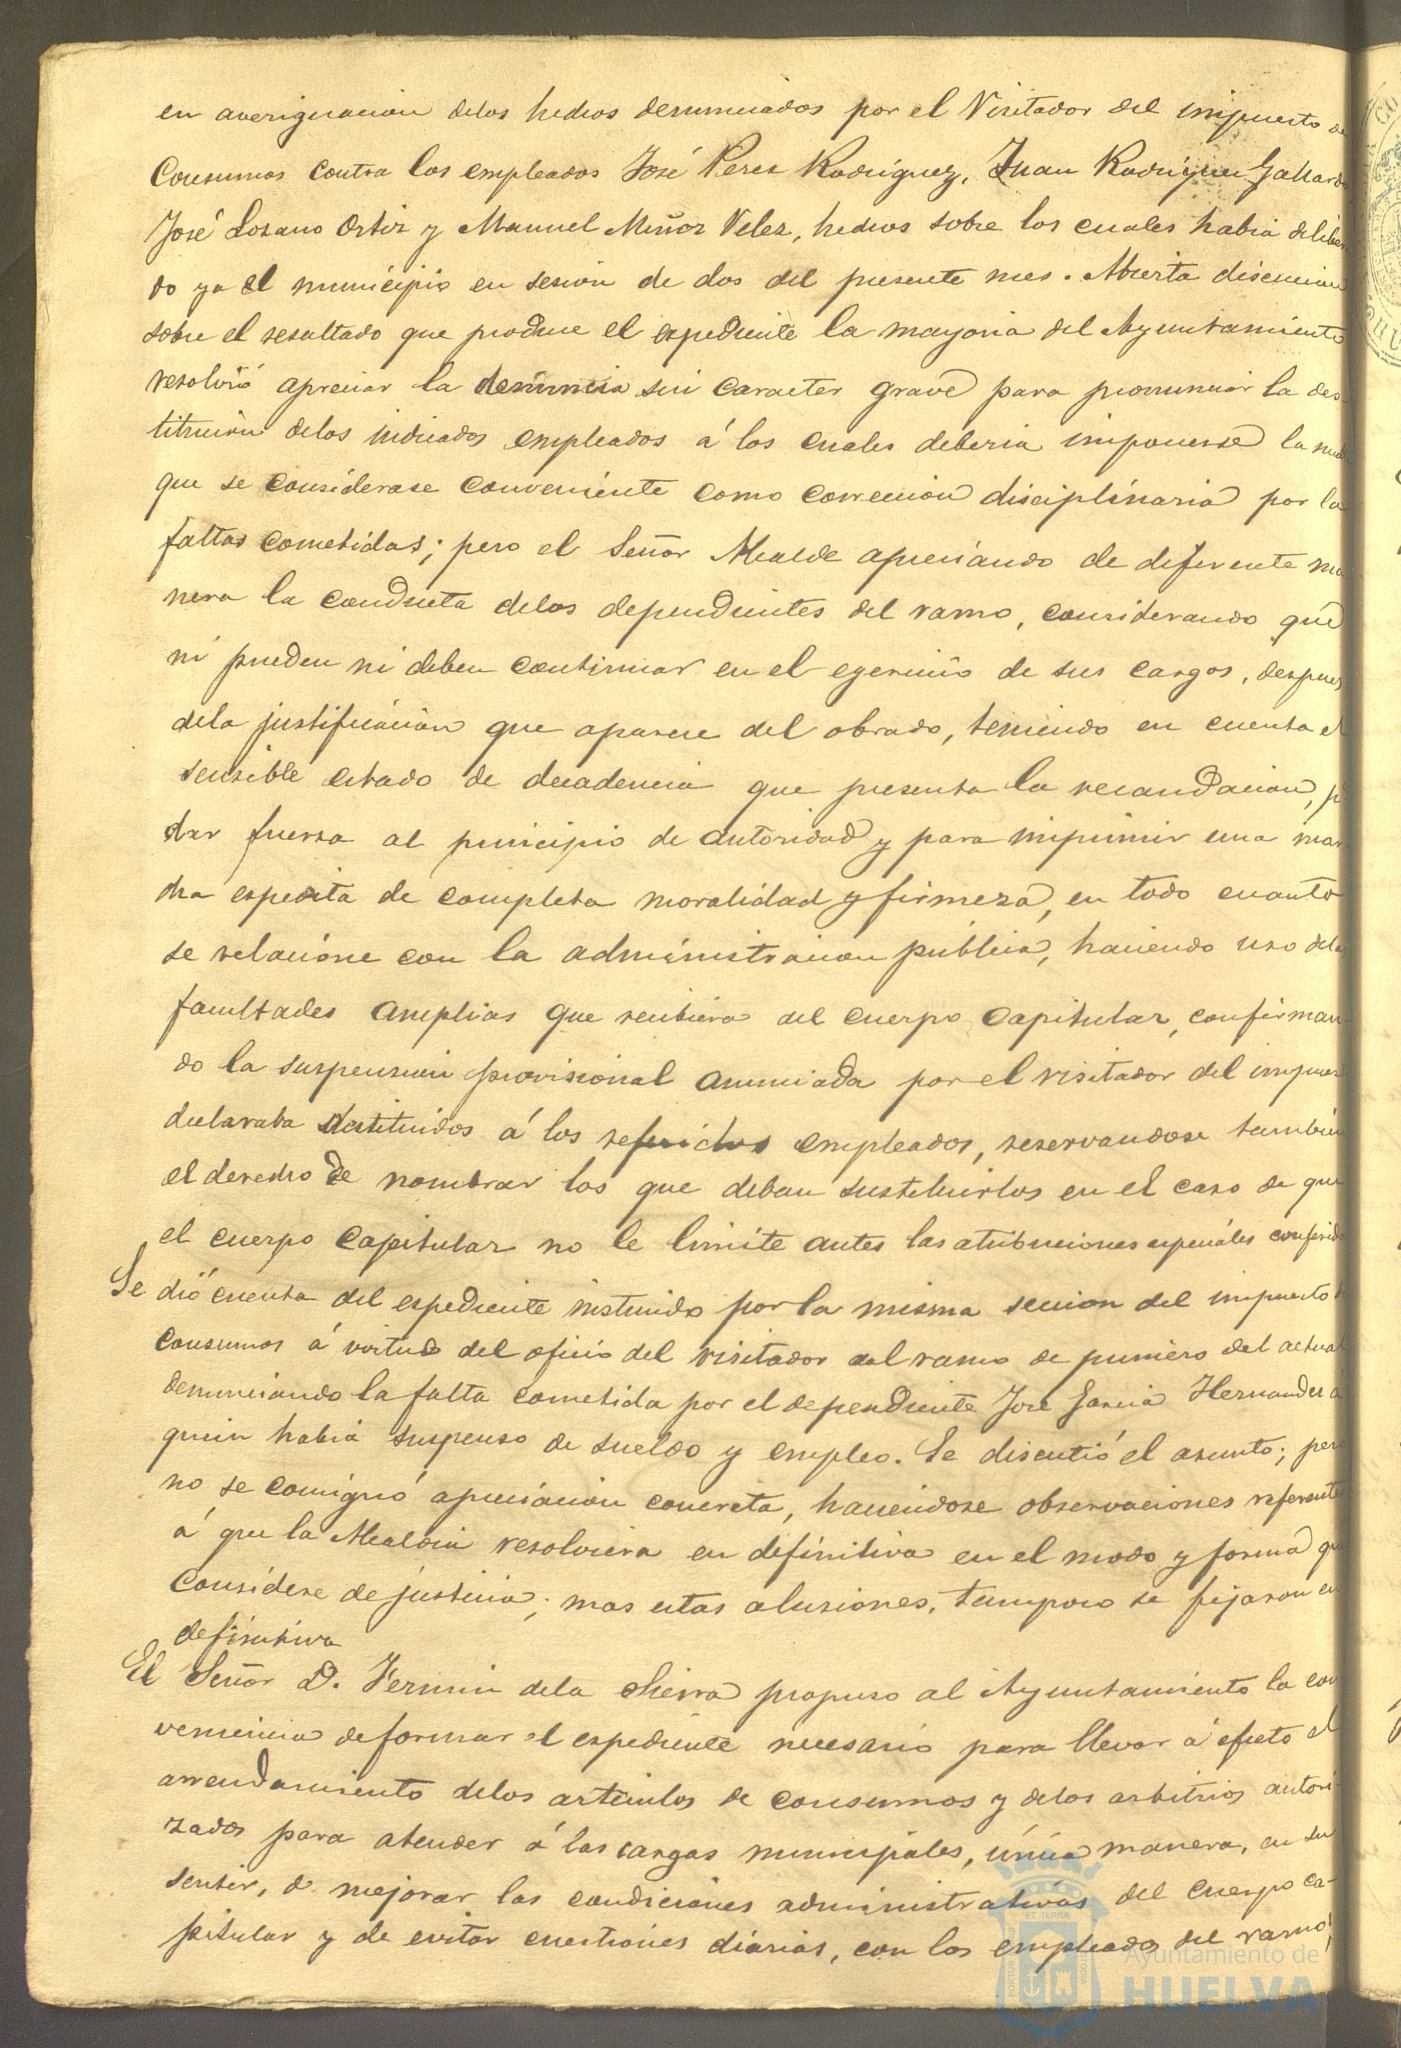 en averiguacion delos hechos denunciados por el Visitador del impuesto de
Consumos contra los empleados José Perez Rodriguez, Juan Rodriguez Gallardo
José Lozano Ortiz y Manuel Muñoz Velez, hechos sobre los cuales habia delibera
do ya el municipio en sesion de dos del presente mes. Abierta discusion
sobre el resultado que produce el espediente la mayoria del Ayuntamiento
resolvió apreciar la denuncia sin caracter grave para pronunciar la des-
titucion delos indicados empleados á los cuales deberia imponerse la multa
que se considerase conveniente como correccion disciplinaria por las
faltas cometidas; pero el Señor Alcalde apreciando de diferente ma
nera la conducta delos dependientes del ramo, considerando que
ni pueden ni deben continuar en el egercicio de sus cargos, despues
dela justificacion que aparece del obrado, teniendo en cuenta el
sensible estado de decadencia que presenta la recaudacion, p
dar fuerza al principio de autoridad y para imprimir una mar
cha espedita de completa moralidad y firmeza, en todo cuanto
se relacione con la administracion publica, haciendo uso delas
facultades amplias que recibiera del cuerpo capitular, confirman-
do la suspension provisional anunciada por el visitador del impuesto
declaraba destituidos á los referidos empleados, reservandose tambien
el derecho de nombrar los que deban sustituirlos en el caso de que
el cuerpo capitular no le limite antes las atribuciones especiales conferidas
Se dió cuenta del espediente instruido por la misma seccion del impuesto de
consumos á virtud del oficio del visitador del ramo de primero del actual
denunciando la falta cometida por el dependiente José Garcia Hernandez a
quien habia suspenso de sueldo y empleo. Se discutió el asunto; pero
no se consignó apreciacion concreta, haciendose observaciones referentes
á que la Alcaldia resolviera en definitiva en el modo y forma que
considere de justicia; mas estas alusiones, tampoco se fijaron en
definitiva
El Señor D. Fermin dela Sierra propuso al Ayuntamiento la con
veniencia de formar el espediente necesario para llevar á efecto el
arrendamiento delos articulos de consumos y delos arbitrios autori
zados para atender á las cargas municipales, única manera, en su
sentir, de mejorar las condiciones administrativas del cuerpo ca-
pitular y de evitar cuestiones diarias, con los empleados del ramo,
Ayuntamiento de
HUELVA